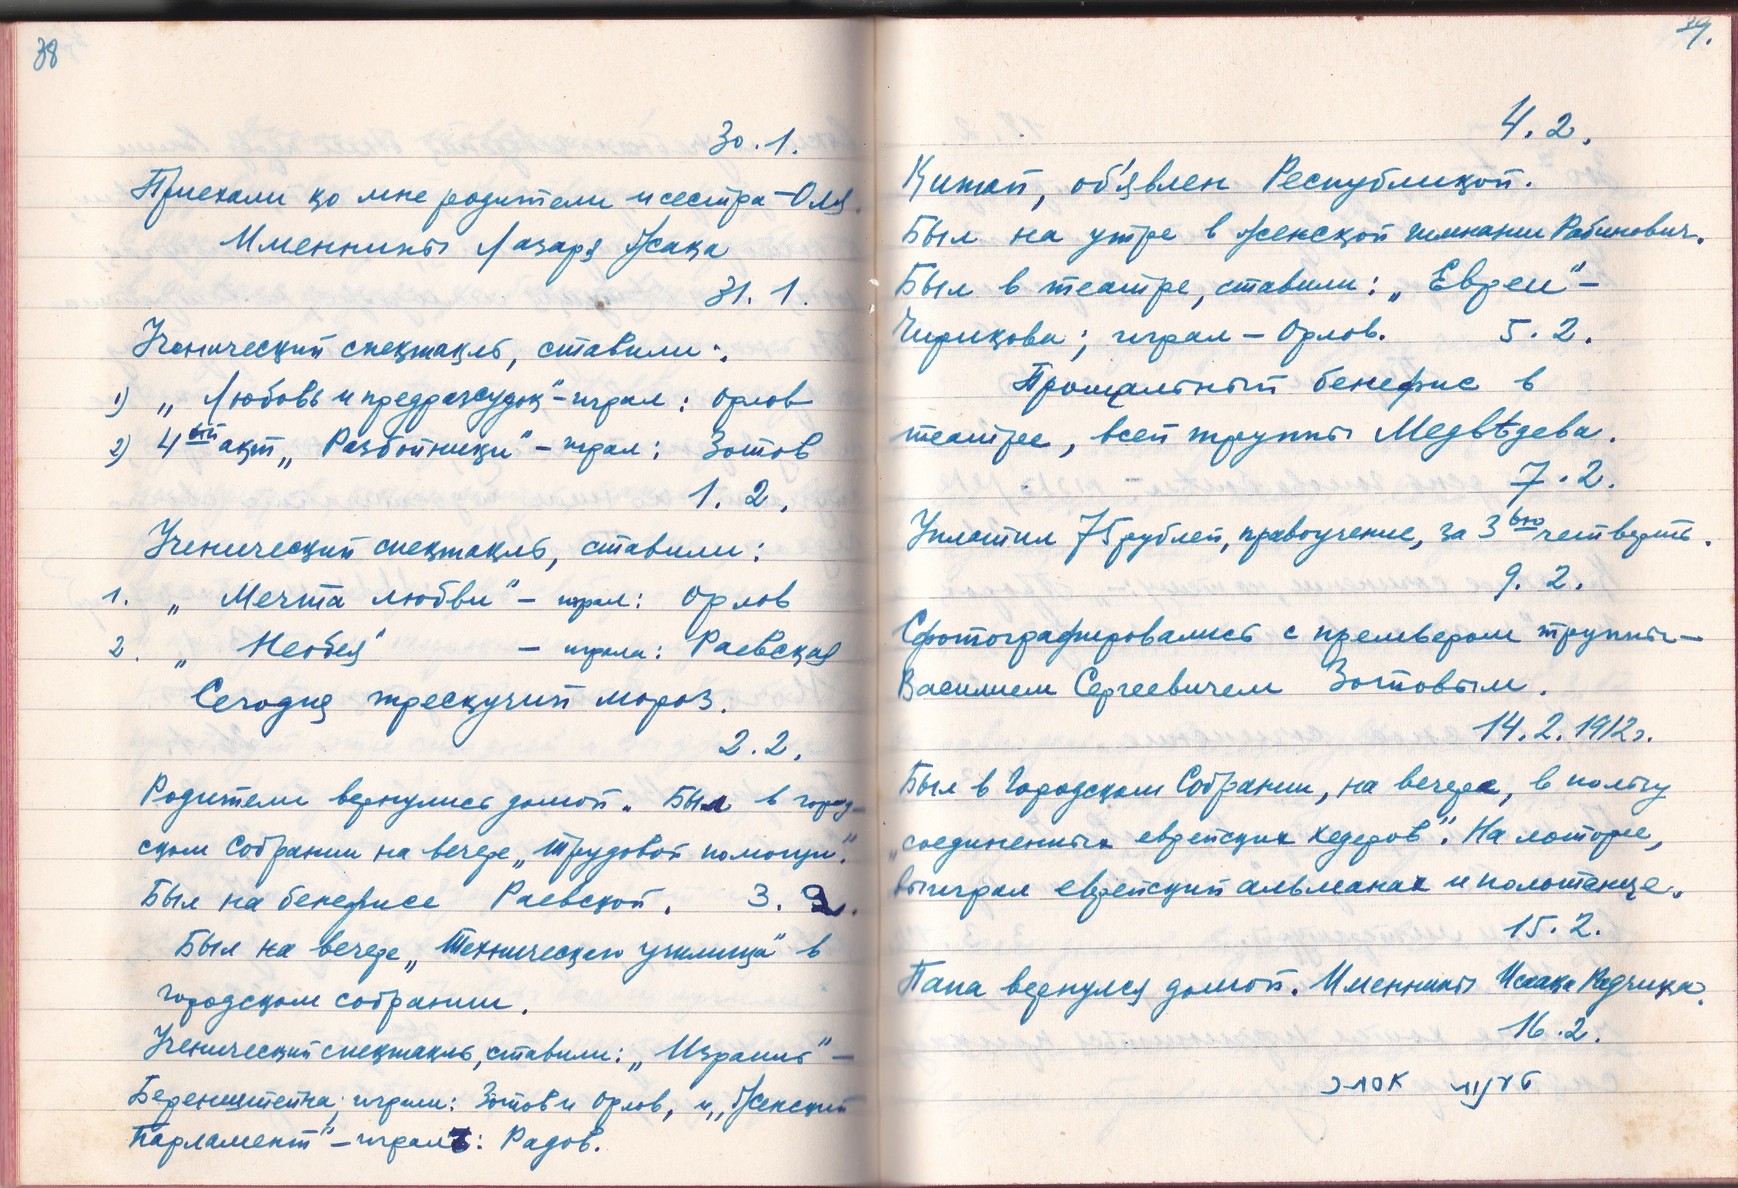 38
30.1.
Приехали ко мне родители и сестра-Оля.
Именины Лазаря Исака
31.1.
Ученический спектакль, ставили:
1) „Любовь и предрассудок"-играл: Орлов
2) 4ый акт „Разбойники" - играл: Зотов
1.2.
Ученический спектакль, ставили:
1. „Мечта любви" - играл: Орлов
2. „ - играла: Раевская
Сегодня трескучий мороз.
2.2.
Родители вернулись домой. Был в город-
ском собрании на вечере „Трудовой помощи".
Был на бенефисе Раевской. 3.2.
Был на вечере „Технического училища" в
городском собрании.
Ученический спектакль, ставили: „Израиль"-
играли: Зотов и Орлов, и „Женский
Парламент"-играл: Радов.
39.
4.2.
Китай, об'явлен Республикой.
Был на утре в женской гимназии Рабинович.
Был в театре, ставили: „Евреи"-
Чирикова; играл-Орлов. 5.2.
Прощальный бенефис в
театре, всей труппы Медвѣдева.
7.2.
Уплатил 75 рублей, правоучение, за 3ью четверть.
9.2.
Сфотографировались с премьером труппы-
Василием Сергеевичем Зотовым.
14.2.1912г.
Был в Городском Собрании, на вечере, в пользу
„соединенных еврейских хедеров". На лотерее,
выиграл еврейский альманах и полотенце.
15.2.
Папа вернулся домой. Именины Исаака Радчика.
16.2.